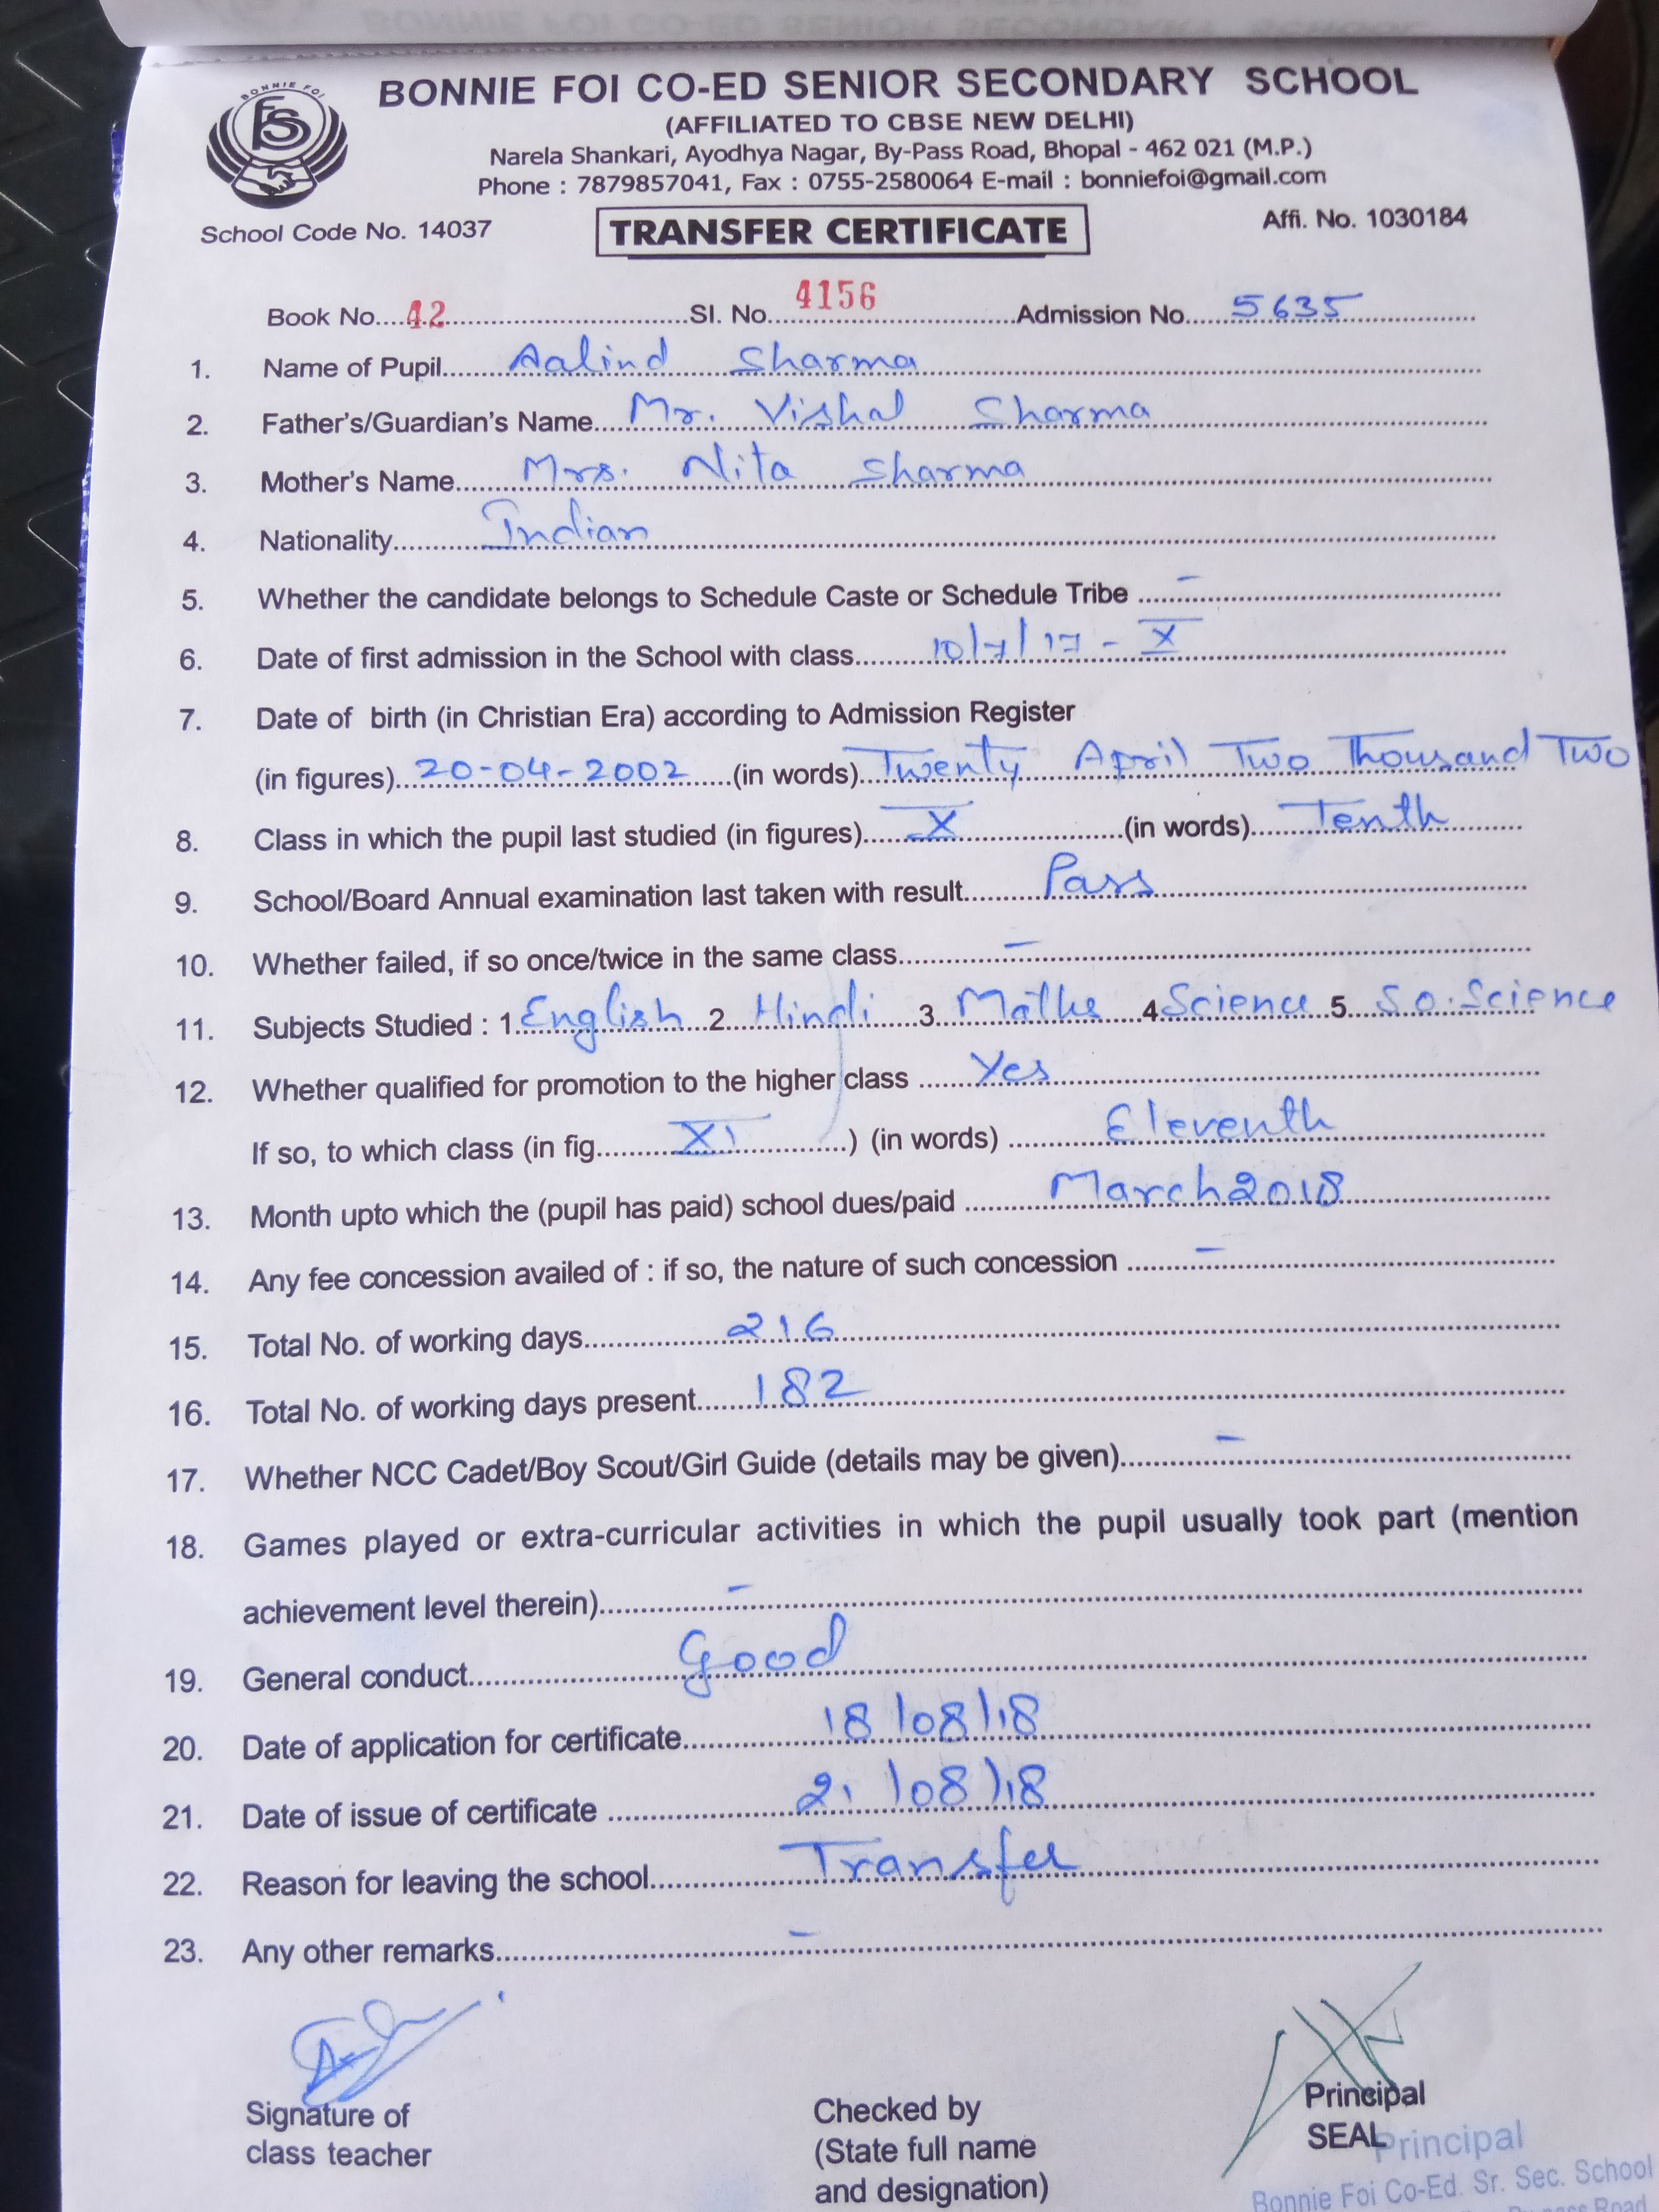 BONNIE FOI CO-ED SENIOR SECONDARY SCHOOL
BONNIE FOI
FS
BONNIE FOI CO-ED SENIOR SECONDARY SCHOOL
(AFFILIATED TO CBSE NEW DELHI)
Narela Shankari, Ayodhya Nagar, By-Pass Road, Bhopal - 462 021 (M.P.)
Phone : 7879857041, Fax : 0755-2580064 E-mail : bonniefoi@gmail.com
School Code No. 14037 TRANSFER CERTIFICATE Affi. No. 1030184
Book No....42....Sl. No....4156....Admission No....5635....
1. Name of Pupil....Aalind Sharma....
2. Father's/Guardian's Name....Mr. Vishal Sharma....
3. Mother's Name....Mrs. Nita Sharma....
4. Nationality....Indian....
5. Whether the candidate belongs to Schedule Caste or Schedule Tribe ....–....
6. Date of first admission in the School with class....10/7/17 - X....
7. Date of birth (in Christian Era) according to Admission Register
(in figures)....20-04-2002....(in words)....Twenty April Two Thousand Two
8. Class in which the pupil last studied (in figures)....X....(in words)....Tenth....
9. School/Board Annual examination last taken with result....Pass....
10. Whether failed, if so once/twice in the same class....–....
11. Subjects Studied : 1. English 2. Hindi 3. Maths 4 Science 5. So. Science
12. Whether qualified for promotion to the higher class ....Yes....
If so, to which class (in fig....XI....) (in words) ....Eleventh....
13. Month upto which the (pupil has paid) school dues/paid ....March 2018....
14. Any fee concession availed of : if so, the nature of such concession ....–....
15. Total No. of working days....216....
16. Total No. of working days present....182....
17. Whether NCC Cadet/Boy Scout/Girl Guide (details may be given)....–....
18. Games played or extra-curricular activities in which the pupil usually took part (mention
achievement level therein)....–....
19. General conduct....Good....
20. Date of application for certificate....18/08/18....
21. Date of issue of certificate ....21/08/18....
22. Reason for leaving the school....Transfer....
23. Any other remarks....–....
Signature of
class teacher
Checked by
(State full name
and designation)
Principal
SEAL
Principal
Bonnie Foi Co-Ed. Sr. Sec. School
Road